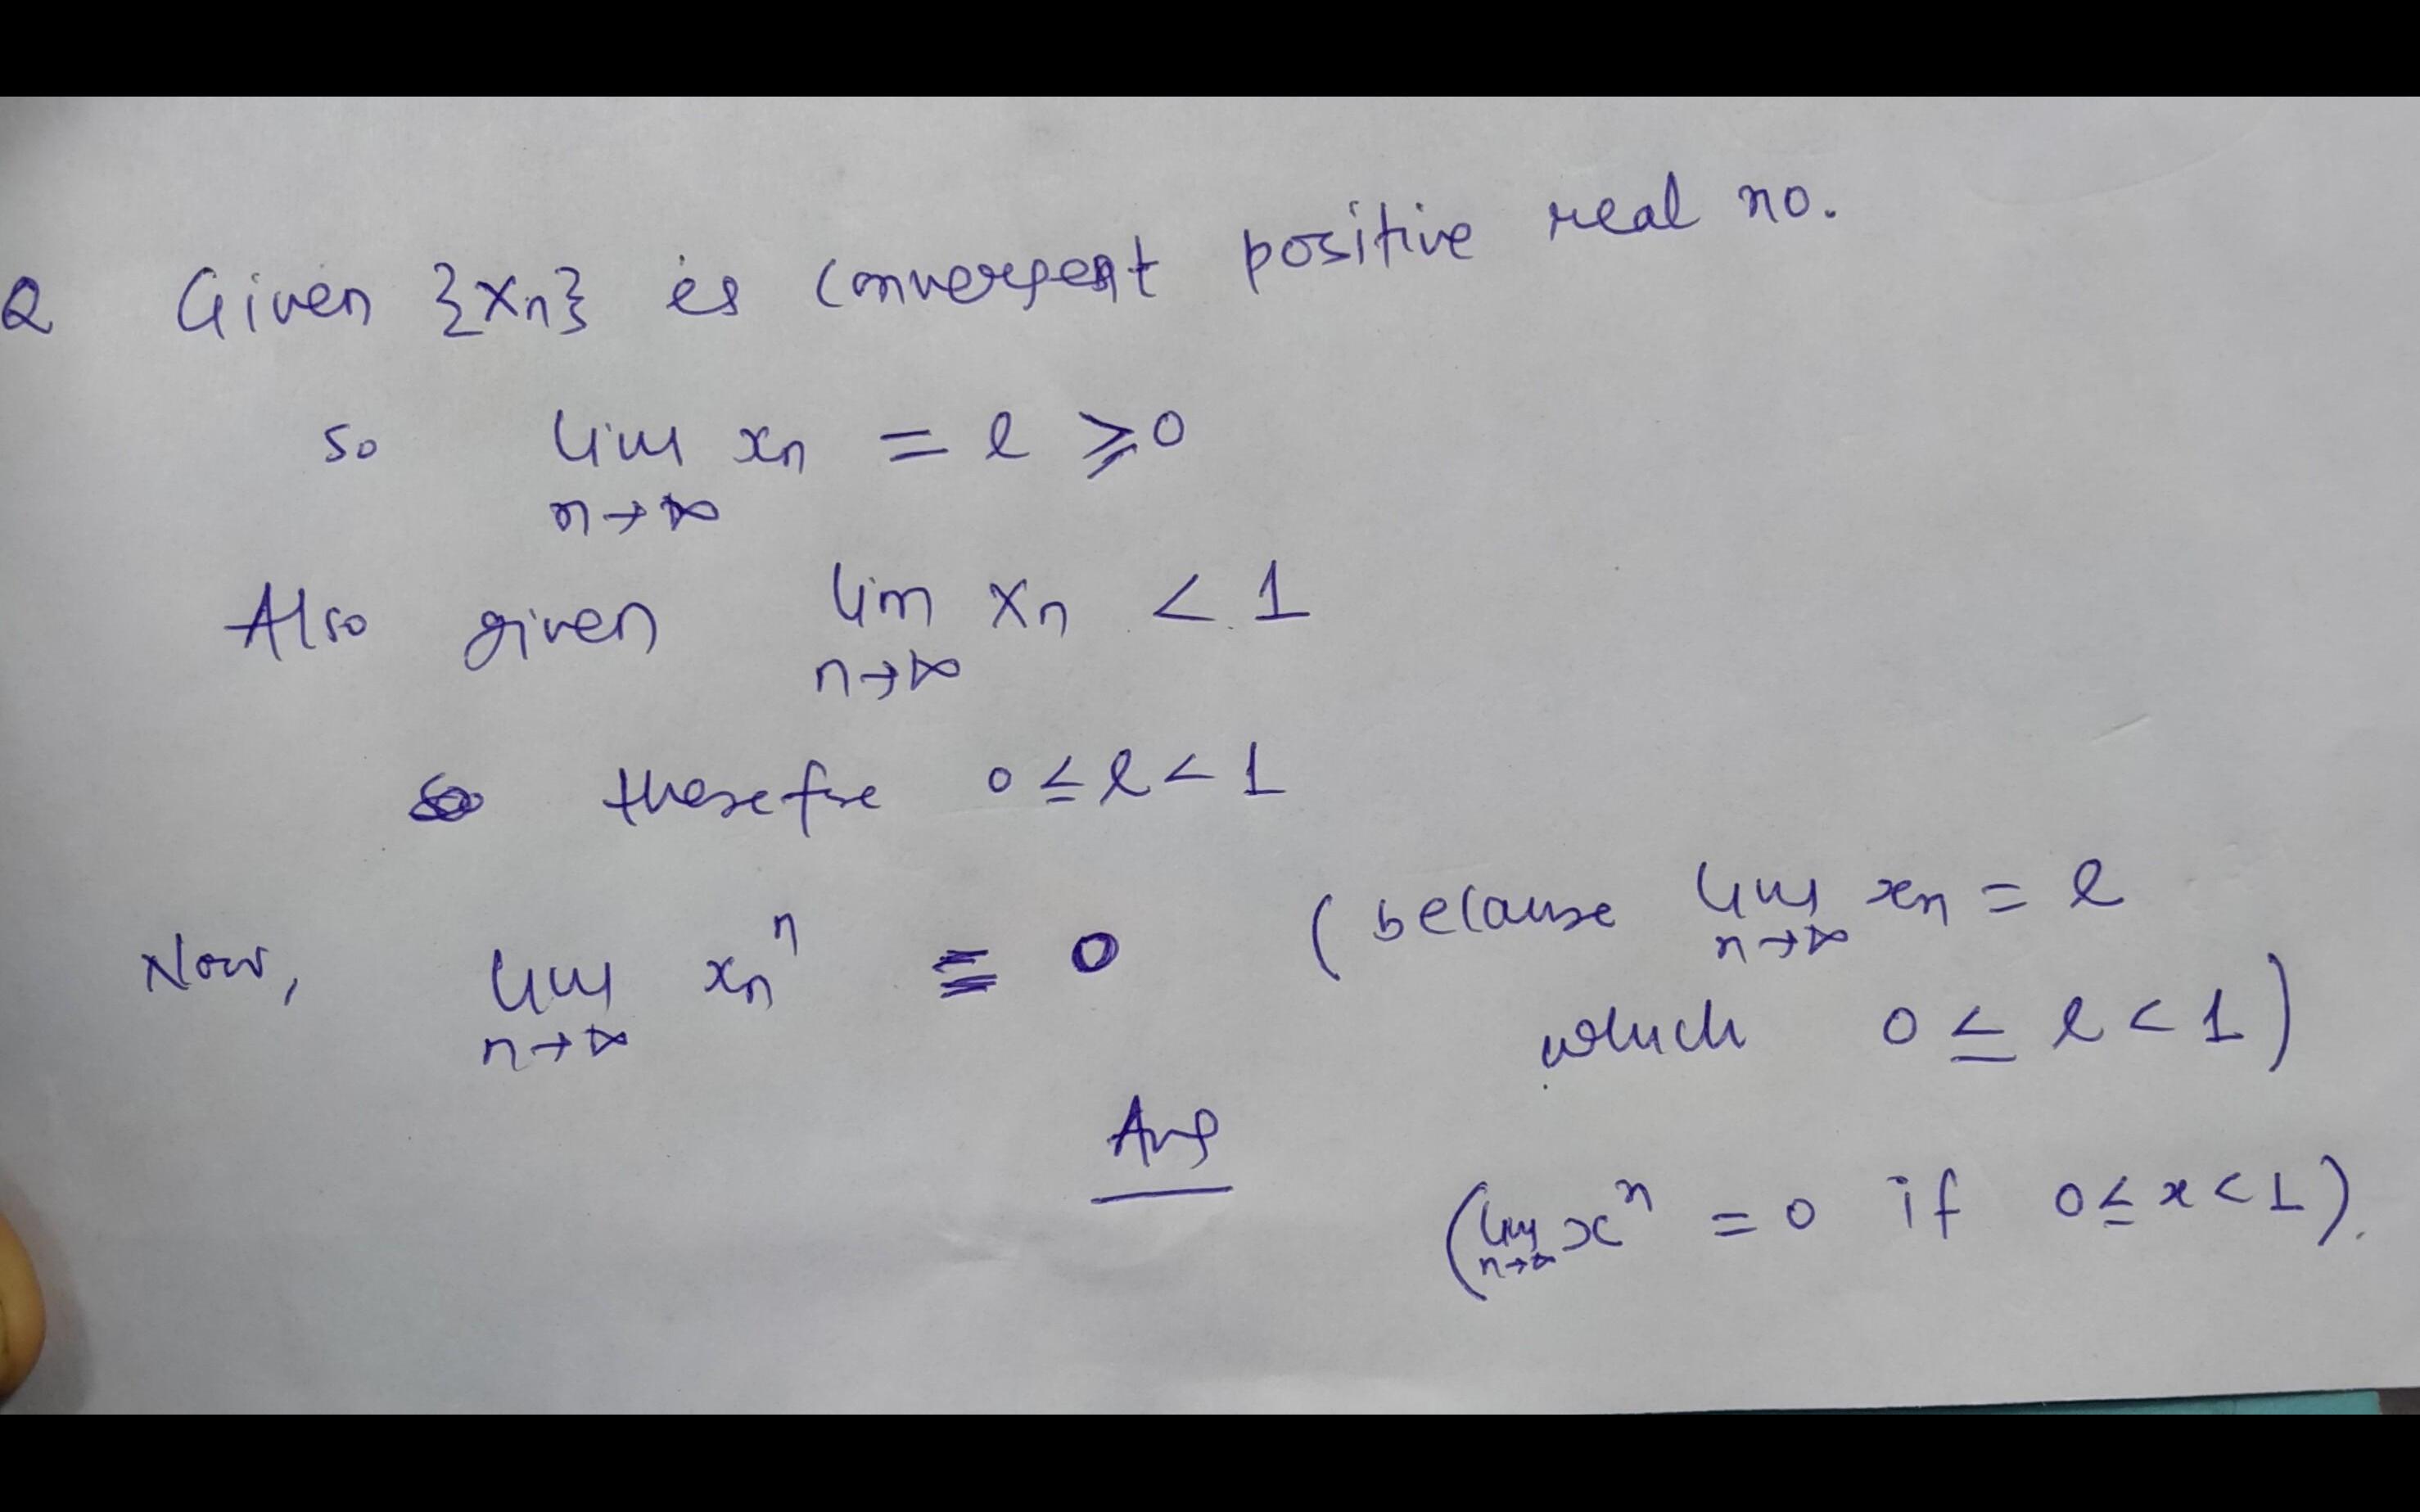 Q Given {xn} is convergent positive real no.
so lim n→∞ xn = l ⩾ 0
Also given lim n→∞ xn < 1
therefore 0 ≤ l < 1
Now, lim n→∞ xnⁿ = 0 (because lim n→∞ xn = l
which 0 ≤ l < 1)
Ans
(lim n→∞ xⁿ = 0 if 0 ≤ x < 1).